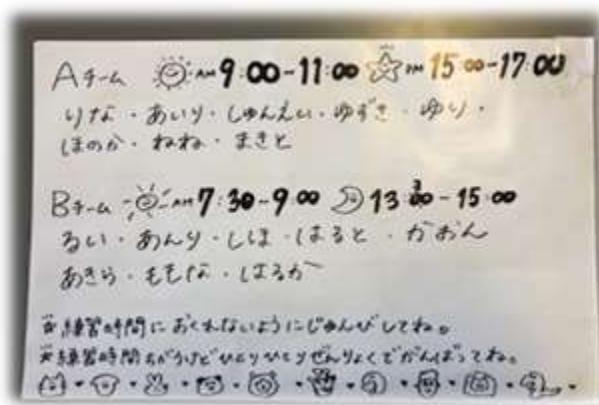 Aチーム AM 9:00-11:00 PM 15:00-17:00
りな・あいり・しゅんえい・ゆずき・ゆり・
ほのか・ねね・まきと
Bチーム AM 7:30-9:00 13:00-15:00
るい・あんり・しほ・はると・かおん
あきら・ももな・はるか
※練習時間におくれないようにじゅんびしてね。
※練習時間ちがうけどひとりひとりぜんりょくでがんばってね。